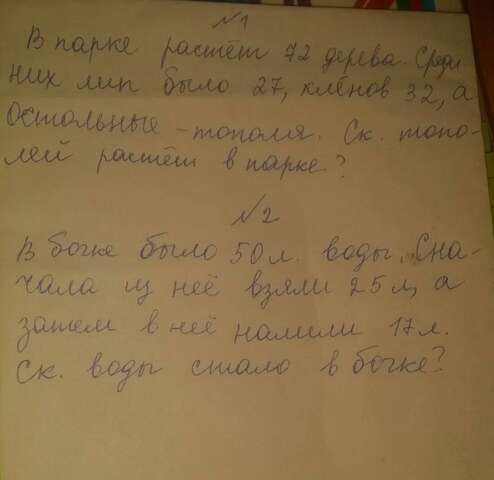 №1
В парке растёт 72 дерева. Среди
них лип было 27, клёнов 32, а
остальные - тополя. Ск. топо-
лей растёт в парке?
№2
В бочке было 50 л. воды. Сна-
чала из неё взяли 25 л, а
затем в неё налили 17 л.
Ск. воды стало в бочке?